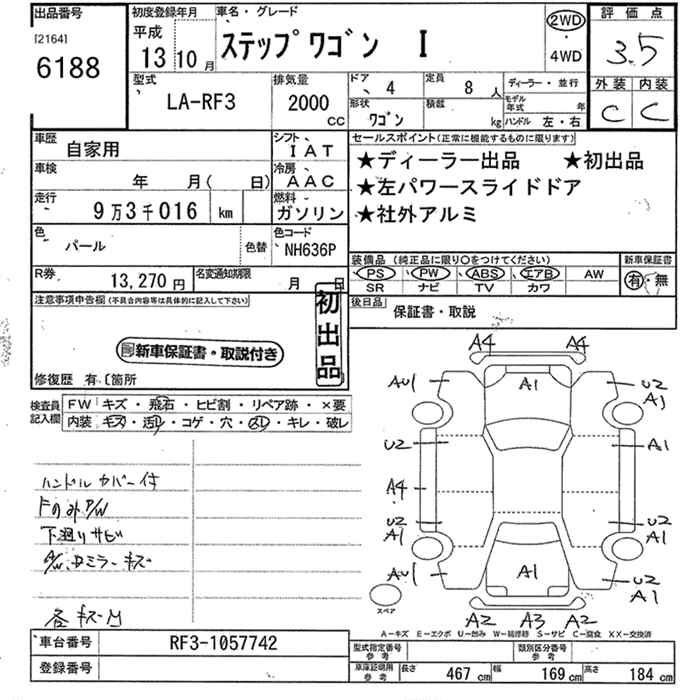 出品番号
[2164]
6188
初度登録年月
平成
13 10 月
車名・グレード
ステップ ワゴン I
2WD
・
4WD
評価点
3.5
外装 内装
C C
型式
LA-RF3
排気量
2000 CC
ドア 4
定員 8 人
形状 ワゴン
積載 kg
ディーラー・並行
モデル年式 年
ハンドル 左・右
車歴 自家用
シフト IAT
セールスポイント(正常に機能するものに限ります)
★ディーラー出品 ★初出品
★左パワースライドドア
★社外アルミ
車検 年 月( 日)
冷房 AAC
走行 9万3千016 km
燃料 ガソリン
色 パール
色替
色コード NH636P
装備品(純正品に限り○をつけてください)
PS PW ABS エアB AW
SR ナビ TV カワ
新車保証書
有・無
R券 13,270 円
名変通知期限 月 日
後日品 保証書・取説
注意事項申告欄(不具合内容等は具体的に記入して下さい)
初出品
新車保証書・取説付き
修復歴 有〔箇所
検査員記入欄
FW キズ・飛石・ヒビ割・リペア跡・×要
内装 キズ・汚れ・コゲ・穴・凹・キレ・破レ
ハンドルカバー付
Fのみ P/W
下廻りサビ
各キズ凹
A4 A4
AU1 A1 U2
A1
U2 A1
A4
U2 U2
A1 A1
AU1 A1 U2
A1
スペア
A2 A3 A2
A―キズ E―エクボ U―凹み W―補修跡 S―サビ C―腐食 XX―交換済
車台番号 RF3-1057742
登録番号
型式指定番号 参考
類別区分番号 参考
車庫証明用 参考
長さ 467 cm
幅 169 cm
高さ 184 cm